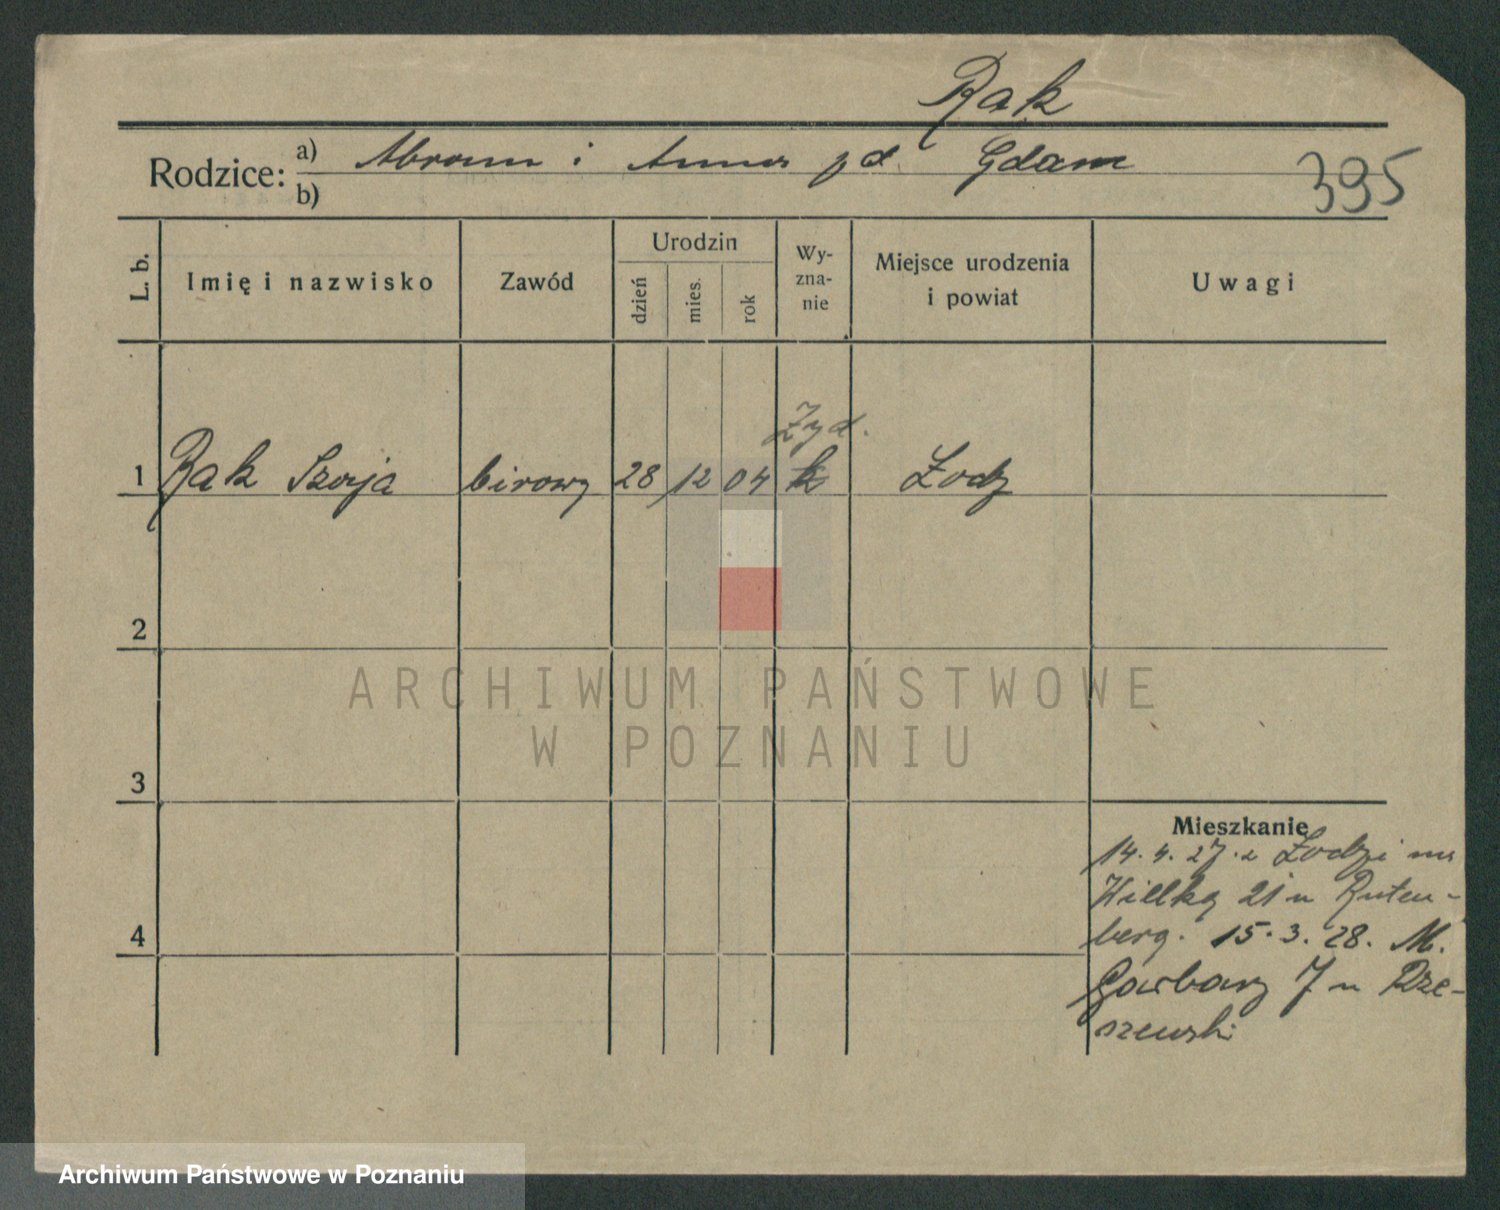 Rak
Rodzice: a) Abram i Anna pd Gdam
b)
395
L. b.
Imię i nazwisko
Zawód
Urodzin
dzień
mies.
rok
Wy-
zna-
nie
Miejsce urodzenia
i powiat
Uwagi
Żyd.
1 Rak Szoja birowy 28 12 04 k Łodz
2
3
4
Mieszkanie
14.4.27. z Łodzi na
Wielką 21 u Ruten-
berg. 15.3.28. M.
Garbary 7 u Rze-
szewski
ARCHIWUM PAŃSTWOWE
W POZNANIU
Archiwum Państwowe w Poznaniu